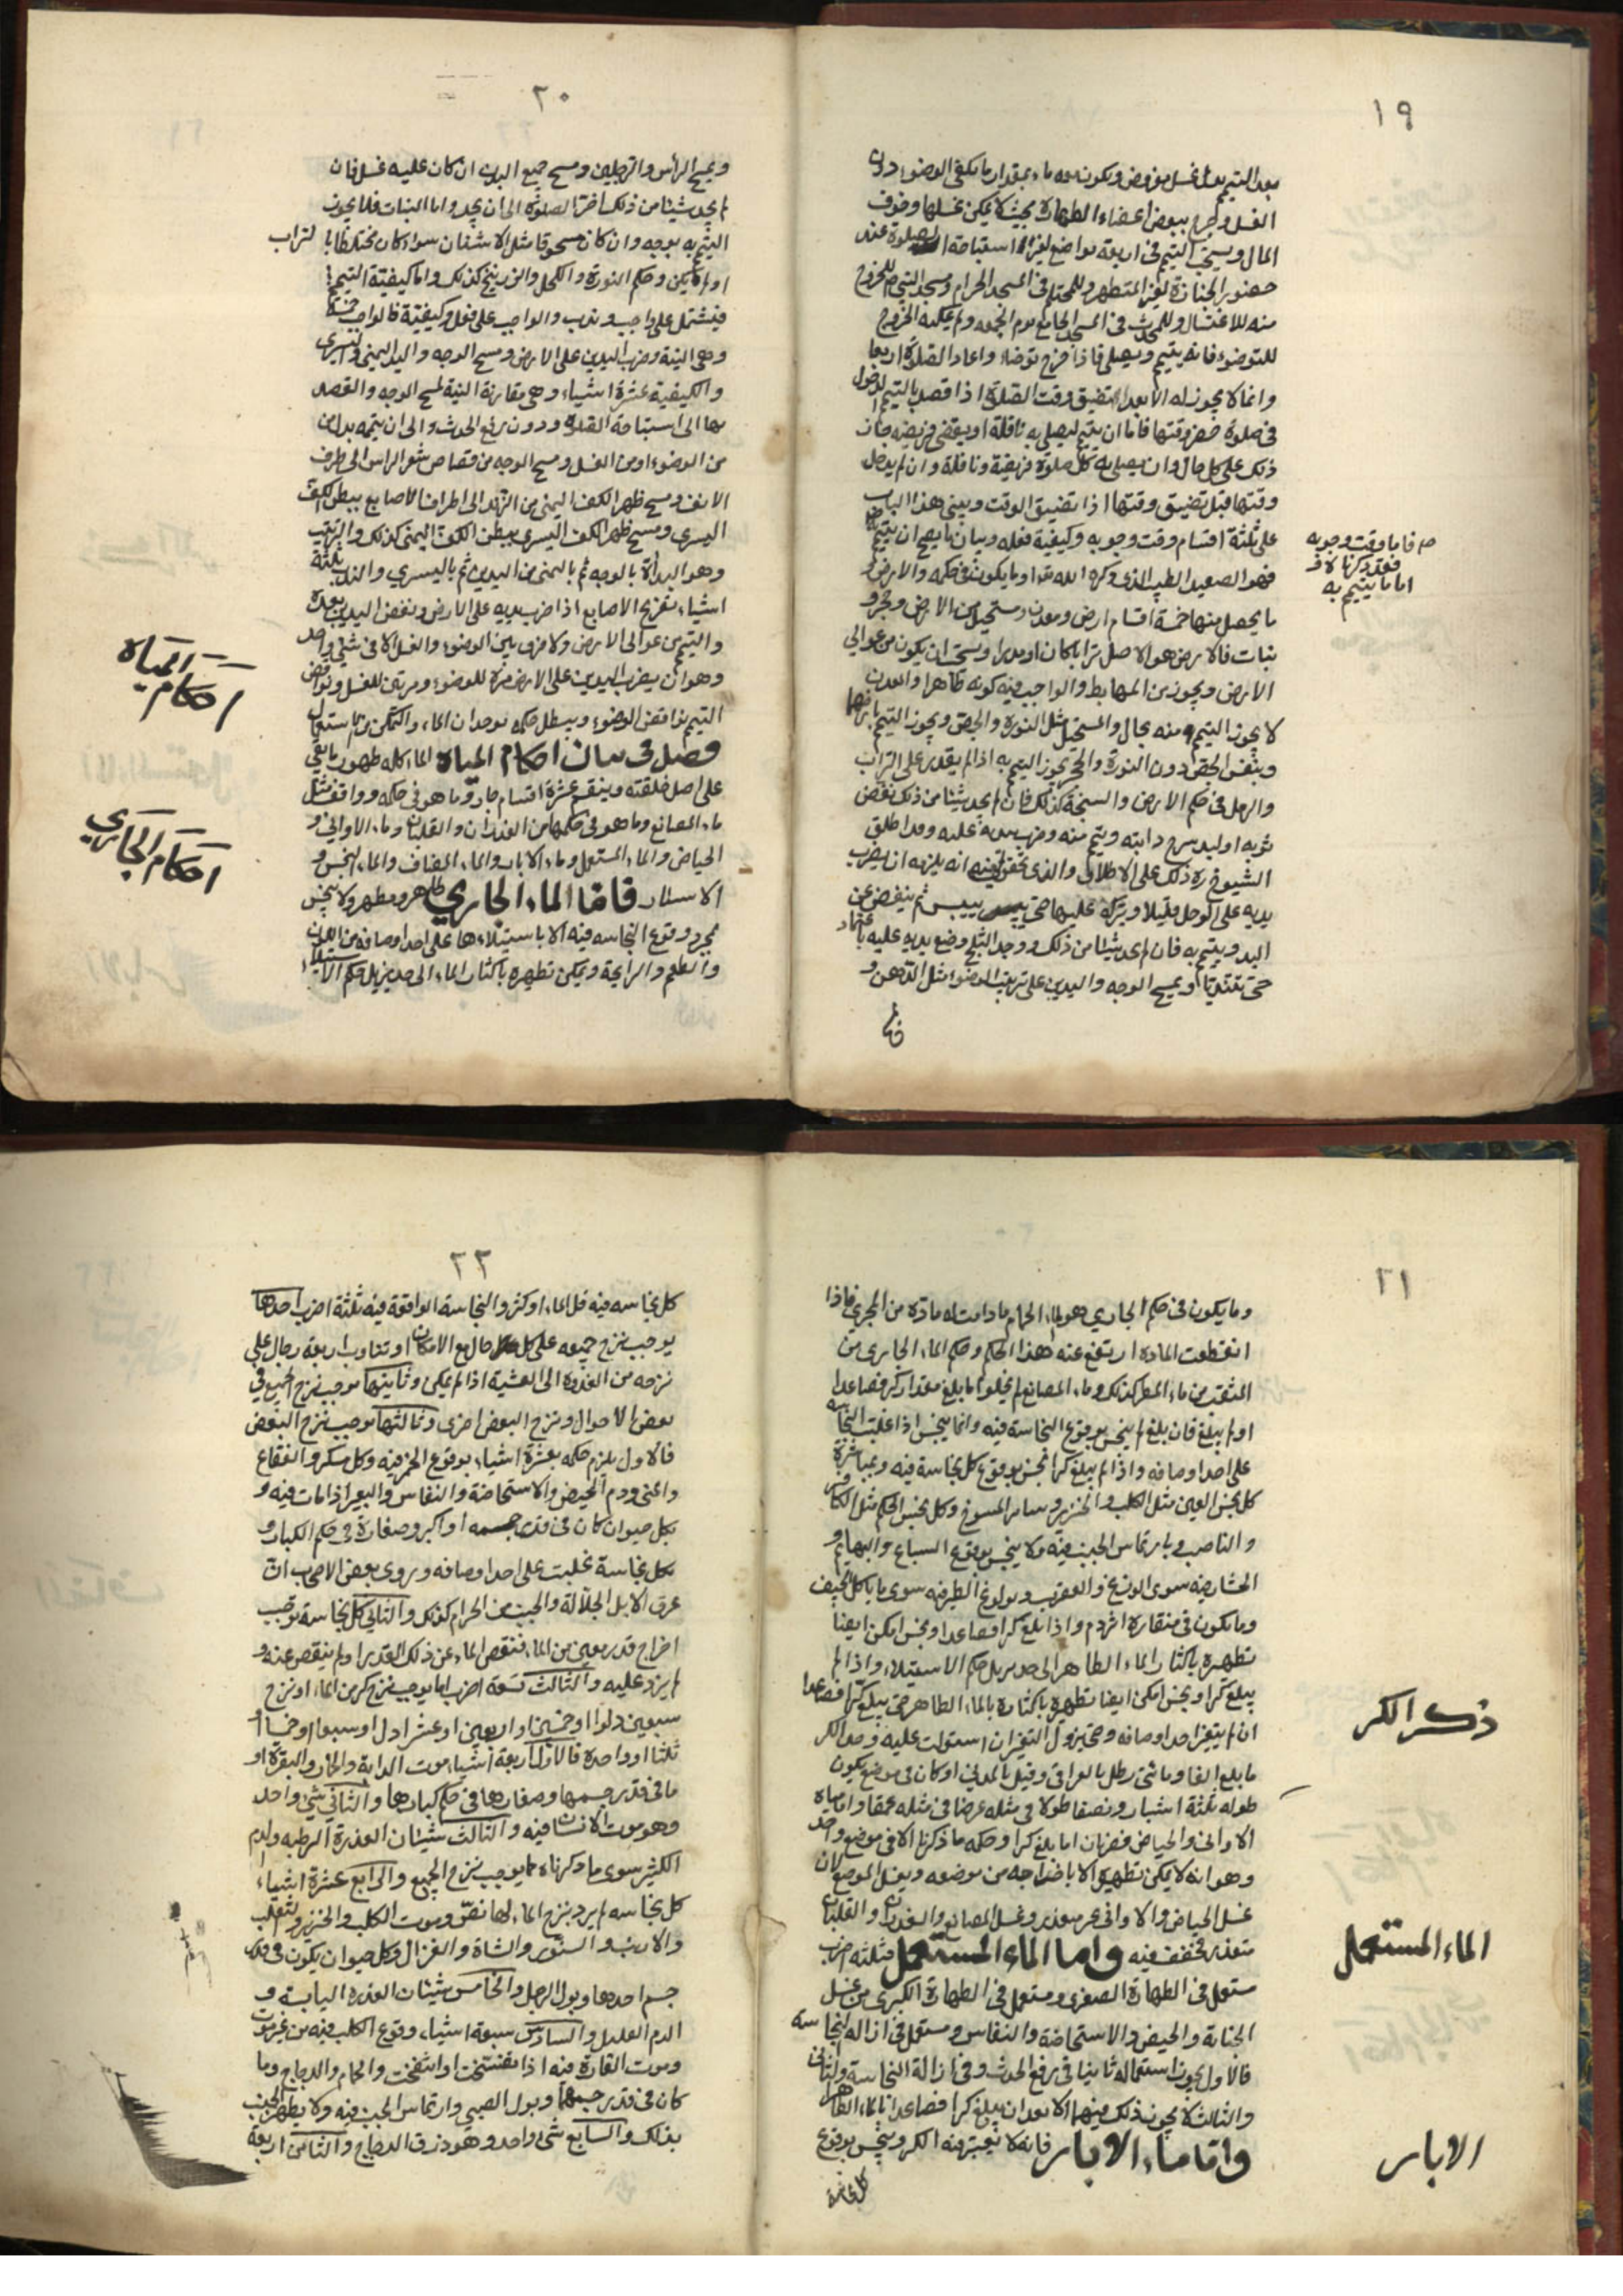 ١٩
بعد التيمم بدل غسل مفروض ويكون معه ماء بمقدار ما يكفي الوضوء دون
الغسل وجرح ببعض اعضاء الطهارة بحيث لا يمكن غسلها وخوف
المال ويستحب التيمم في اربعة مواضع لغير استباحة الصلوة عند
حضور الجنازة لغير المتطهر وللمحتلم في المسجد الحرام ومسجد النبي ص للخروج
منه للاغتسال وللمحدث في المسجد الجامع يوم الجمعه ولم يمكنه الخروج
للتوضوء فانه يتيمم ويصلى فاذا خرج توضاء واعاد الصلوة اربعا
وانما لا يجوز له الا بعد تضيق وقت الصلوة اذا قصد بالتيمم الدخول
في صلوة حضر وقتها فاما ان يتيمم ليصلي به نافلة او يقضى فريضه جاز
ذلك على كل حال وان يصلي به كل صلوة فريضة ونافلة وان لم يدخل
وقتها قبل تضيق وقتها اذا تضيق الوقت ويبنى هذا الباب
على ثلثة اقسام وقت وجوبه وكيفية فعله وبيان ما يصح ان يتيمم
ص فاما وقت وجوبه
فقد ذكرنا
اما ما يتيمم به
فهو الصعيد الطيب الذي ذكره الله تعا وما يكون في حكمه والارض و
ما يحصل منها خمسة اقسام ارض ومعدن ومستحيل من الارض وحجر و
نبات فالارض هو الاصل ترابا كان او مدرا ويستحب ان يكون من عوالي
الارض ويجوز من المهابط والواجب فيه كونه طاهرا والمعدن
لا يجوز التيمم منه بحال والمستحيل مثل النورة والجص ويجوز التيمم بارضها
وبنفس الجص دون النورة والحجر يجوز التيمم به اذا لم يقدر على التراب
والرمل في حكم الارض والسبخة كذلك فان لم يجد شيئا من ذلك نفض
ثوبه او لبد سرج دابته ويتيمم منه وضرب يديه عليه وقد اطلق
الشيوخ ره ذلك على الاطلاق والذي تحقق انه يلزمه ان يضرب
يديه على الوحل قليلا ويتركه عليها حتى ييبس ثم ينفض عن
اليد ويتيمم به فان لم يجد شيئا من ذلك ووجد الثلج وضع يديه عليه باعتماد
حتى تتنديا ويمسح الوجه واليدين على ترتيب الوضوء مثل الدهن و
٢٠
ويمسح الراس والرجلين ومسح جميع البدن ان كان عليه غسل فان
لم يجد شيئا من ذلك اخر الصلوة الى ان يجد واما النبات فلا يجوز
التيمم به بوجه وان كان مسحوقا مثل الاشنان سواء كان مختلطا بالتراب
او لم يكن وحكم النورة والكحل والزرنيخ كذلك واما كيفية التيمم
فيشتمل على واجب وندب والواجب على فعل وكيفية فالواجب خمسة
وهي النية وضرب اليدين على الارض ومسح الوجه واليد اليمنى واليسرى
والكيفية عشرة اشياء وهي مقارنة النية لمسح الوجه والقصد
بها الى استباحة الصلوة دون رفع الحدث والى ان يتيمه بدلا من
من الوضوء او من الغسل ومسح الوجه من قصاص شعر الراس الى طرف
الانف ومسح ظهر الكف اليمنى من الزند الى اطراف الاصابع ببطن الكف
اليسرى ومسح ظهر الكف اليسرى ببطن الكف اليمنى كذلك والترتيب
وهو البدأة بالوجه ثم باليمنى من اليدين ثم باليسري والندب ثلثة
اشياء تفريج الاصابع اذا ضرب يديه على الارض ونفض اليدين بعده
والتيمم من عوالى الارض ولا فرق بين الوضوء والغسل الا في شيء واحد
وهو ان يضرب اليدين على الارض مرة للوضوء ومرتين للغسل ونواقض
التيمم نواقض الوضوء ويبطل حكمه بوجدان الماء والتمكن من استعمال
احكام المياه
فصل في بيان احكام المياه الماء كله طهور ما بقي
على اصل خلقته وينقسم عشرة اقسام جار وما هو في حكمه وواقف مثل
ماء المصانع وما هو في حكمها من الغدران والقلبان وماء الاواني و
الحياض والماء المستعمل وماء الابار والماء المضاف والماء النجس و
احكام الجاري
الاسئار فاما الماء الجاري طاهر ومطهر ولا ينجس
بمجرد وقوع النجاسه فيه الا باستيلاءها على احد اوصافه من اللون
والطعم والرايحة ويمكن تطهيره باكثار الماء الى حد يزيل حكم الاستيلاء
٢١
وما يكون في حكم الجاري هو ماء الحمام ما دامت له مادة من المجرى فاذا
انقطعت المادة ارتفع عنه هذا الحكم وحكم الماء الجارى من
المثعب من ماء المطر كذلك وماء المصانع لم يخلوا ما بلغ مقدار كر فصاعدا
او لم يبلغ فان بلغ لم ينجس بوقوع النجاسة فيه وانما ينجس اذا غلبت النجاسة
على احد اوصافه واذا لم يبلغ كرا نجس بوقوع كل نجاسة فيه وبمباشرة
كل نجس العين مثل الكلب والخنزير وسائر المسوخ وكل نجس الحكم مثل الكافر
والناصب وبارتماس الجنب فيه ولا ينجس بوقوع السباع والبهايم و
الحشار فيه سوى الوزغ والعقرب وبولوغ الطير فيه سوى ما ياكل الجيف
وما يكون في منقاره اثر دم واذا بلغ كرا فصاعدا ونجس امكن ايضا
تطهيره باكثار الماء الطاهر الى حد يزيل حكم الاستيلاء واذا لم
يبلغ كرا ونجس امكن ايضا تطهيره باكثاره بالماء الطاهر حتى يبلغ كرا فصاعدا
ذكر الكر
ان لم يتغير احد اوصافه وحتى يزول التغير ان استولت عليه وحد الكر
ما بلغ الفا ومائتى رطل بالعراقي وقيل بالمدني او كان في موضع يكون
طوله ثلثة اشبار ونصفا طولا في مثله عرضا في مثله عمقا واما مياه
الاوانى والحياض فضربان اما بلغ كرا وحكمه ما ذكرنا الا في موضع واحد
وهو انه لا يمكن تطهيره الا باخراجه من موضعه وبغسل الموضع لان
غسل الحياض والاوانى غير متعذر وغسل المصانع والغدران والقلبان
الماء المستعمل
متعذر فخفف فيه واما الماء المستعمل فثلثه اضرب
مستعمل في الطهارة الصغرى ومستعمل في الطهارة الكبرى من غسل
الجنابة والحيض والاستحاضة والنفاس ومستعمل في ازاله النجاسة
فالاول يجوز استعماله ثانيا في رفع الحدث وفي ازالة النجاسة والثاني
والثالث لا يجوز ذلك فيهما الا بعد ان يبلغ كرا فصاعدا بالماء الطاهر
الابار
واما ماء الابار فانه لا يعتبر فيه الكر وينجس بوقوع
كل نجاسة
٢٢
كل نجاسه فيه قل الماء او كثر والنجاسة الواقعة فيه ثلثة اضرب احدها
يوجب نزح جميعه على كل حال مع الامكان او تناوب اربعة رجال على
نزحه من الغدوة الى العشية اذا لم يمكن وثانيتها يوجب نزح الجميع في
بعض الاحوال ونزح البعض اخرى وثالثتها يوجب نزح البعض
فالاول يلزم حكمه بعشرة اشياء بوقوع الخمر فيه وكل مسكر والفقاع
والمنى ودم الحيض والاستحاضة والنفاس والبعير اذا مات فيه و
بكل حيوان كان في قدر جسمه او اكبر وصغاره في حكم الكبار و
بكل نجاسة غلبت على احد اوصافه وروى بعض الاصحاب ان
عرق الابل الجلالة والجنب من الحرام كذلك والثاني كل نجاسة توجب
اخراج قدر معين من الماء فنقص الماء عن ذلك القدر او لم ينقص عنه و
لم يزد عليه والثالث تسعة اضرب اما يوجب نزح كر من الماء او نزح
سبعين دلوا او خمسين او اربعين او عشر ادل او سبعا او خمسا او
ثلثا او واحدة فالاول اربعة اشياء موت الدابة والحمار والبقرة او
ما في قدر جسمها وصغارها في حكم كبارها والثاني شيء واحد
وهو موت الانسان فيه والثالث شيئان العذرة الرطبه والدم
الكثير سوى ما ذكرناه مما يوجب نزح الجميع والرابع عشرة اشياء
كل نجاسه لم يرد بنزح الماء لها نص وموت الكلب والخنزير والثعلب
والارنب والسنور والشاة والغزال وكل حيوان يكون في قدر
جسم احدها وبول الرجل والخامس شيئان العذرة اليابسة و
الدم القليل والسادس سبعة اشياء وقوع الكلب فيه من غير موت
وموت الفارة فيه اذا تفسخت او انتفخت والحمام والدجاج وما
كان في قدر جسمهما وبول الصبي وارتماس الجنب فيه ولا يطهر الجنب
بذلك والسابع شيء واحد وهو ذرق الدجاج والثامن اربعة